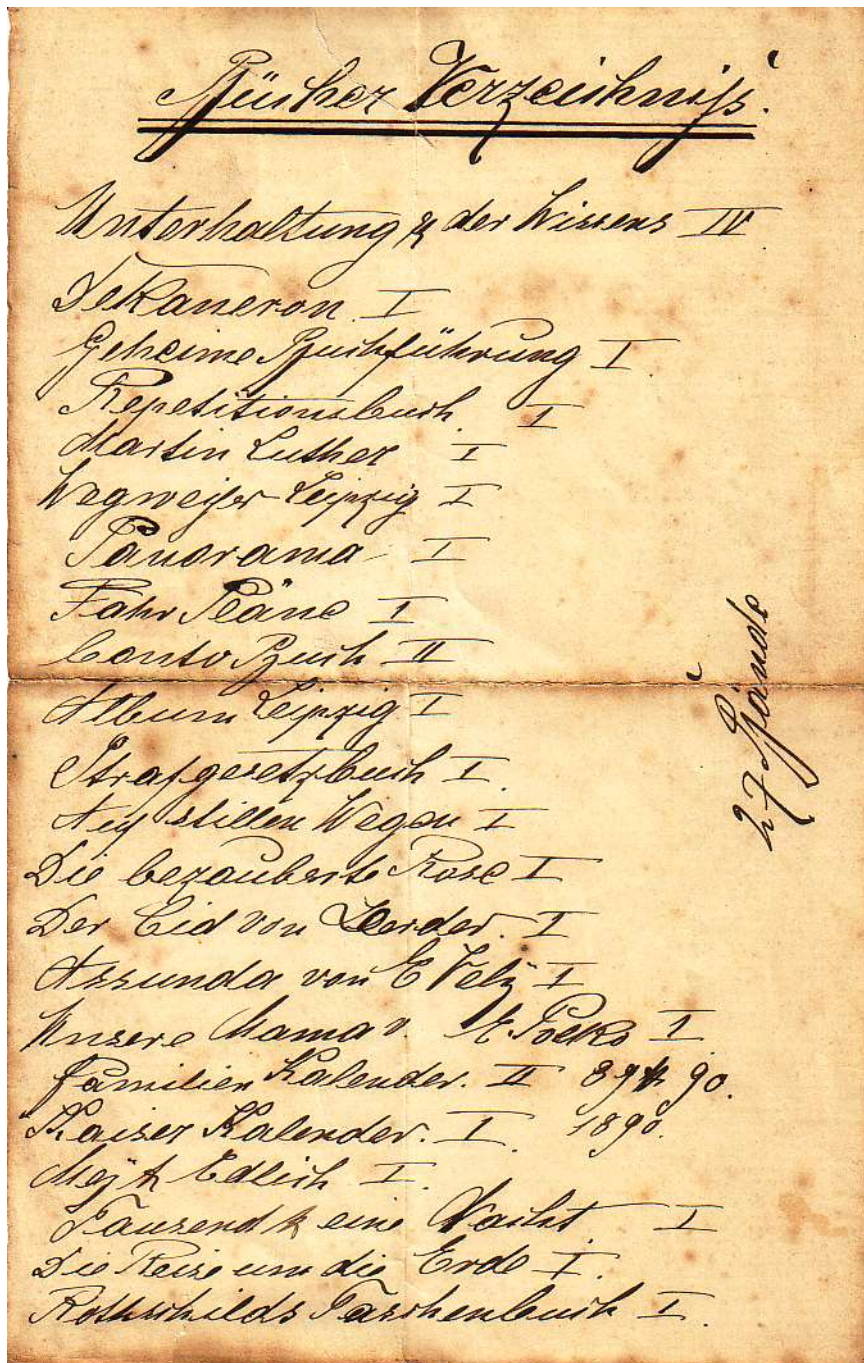 Bücher Verzeichniß.
Unterhaltung & der Wissens IV
Dekaneron I
Geheime Buchführung I
Repetitionsbuch I
Martin Luther I
Wegweiser Leipzig I
Panorama I
Fahr Pläne I
Conto Buch II
Album Leipzig I
Strafgesetzbuch I
Auf stillen Wegen I
Die bezauberte Rose I
Der Cid von Herder. I
Assunda von E Vely I
Unsere Mama v. E. Polko I
Familien Kalender. II 89 & 90.
Kaiser Kalender. I. 1890.
Mey & Edlich I.
Tausend & eine Nacht. I
Die Reise um die Erde I.
Rothschilds Taschenbuch I.
27 Bände